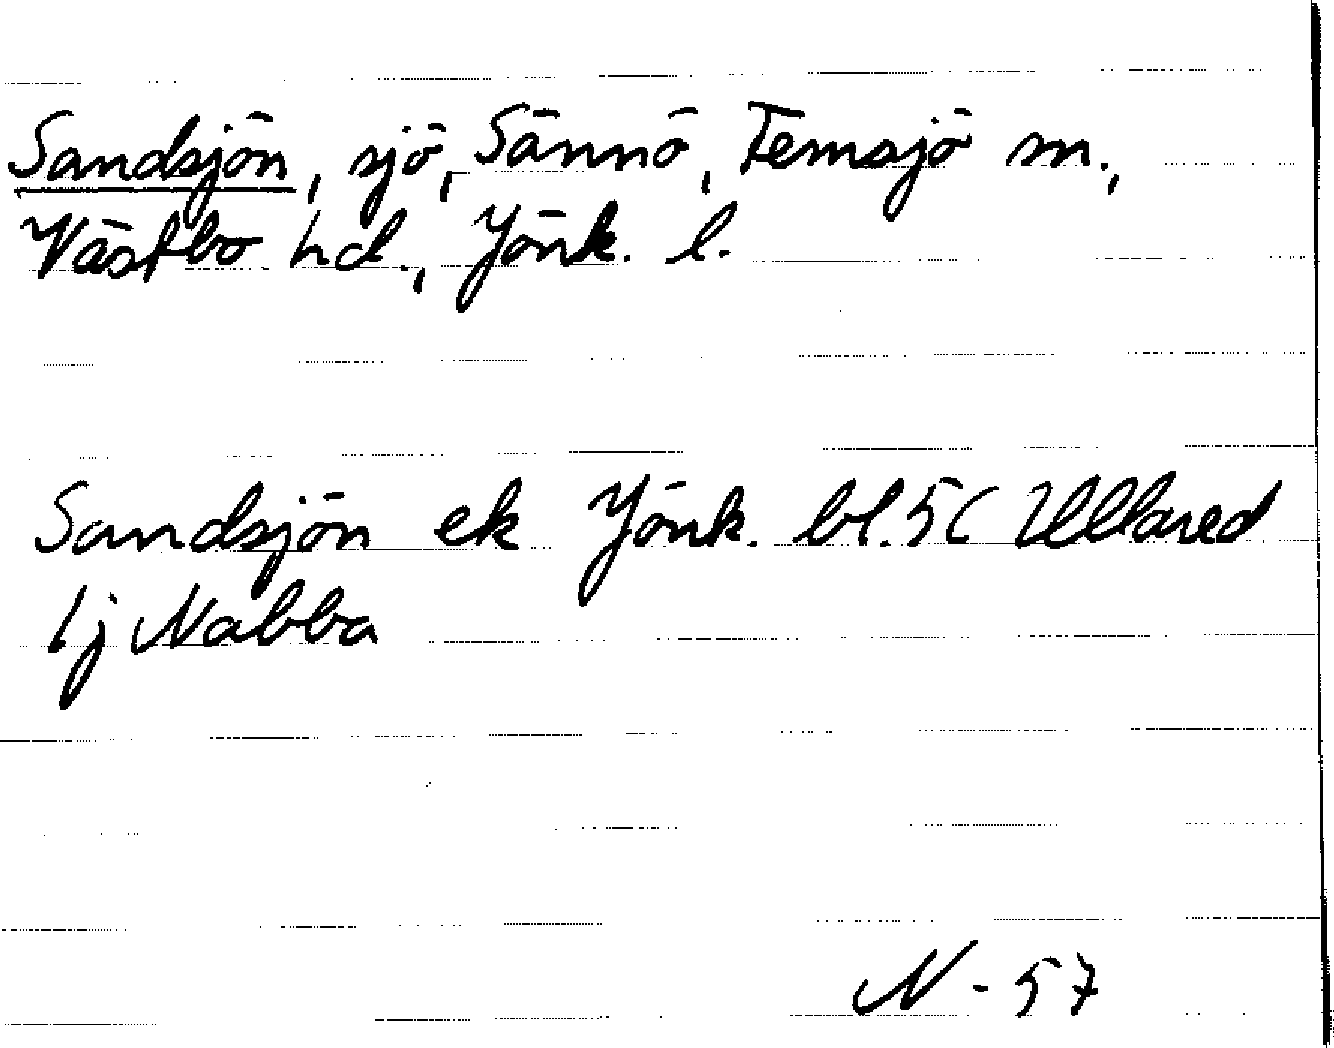 Sandsjön, sjö, Sännö, Femsjö sn.,
Västbo hd., Jönk. l.
Sandsjön ek Jönk. bl. 5C Ullared
1j Nabba
N - 57